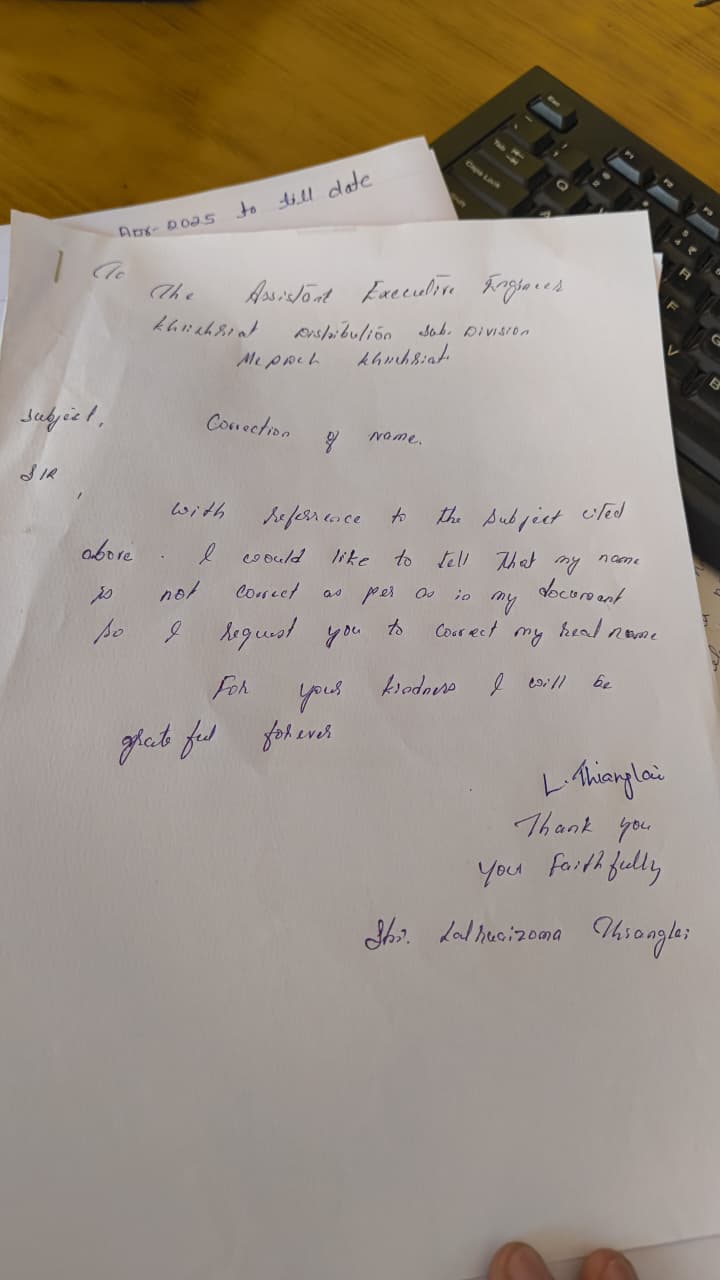 Apr-2025 to till date
To
The Assistant Executive Engineer
Khliehriat Distribution Sub. Division
Mepdcl Khliehriat
Subject, Correction of Name.
SIR,
With reference to the Subject cited
above. I would like to tell That my name
is not correct as per as in my document
So I request you to correct my real name
For your kindness I will be
grateful forever
L. Thianglai
Thank you
Your Faithfully
Shri. Lalruoizoma Thianglai
Esc
Tab
Caps Lock
Shift
F1
F2
F3
Q
A
R
F
V
G
B